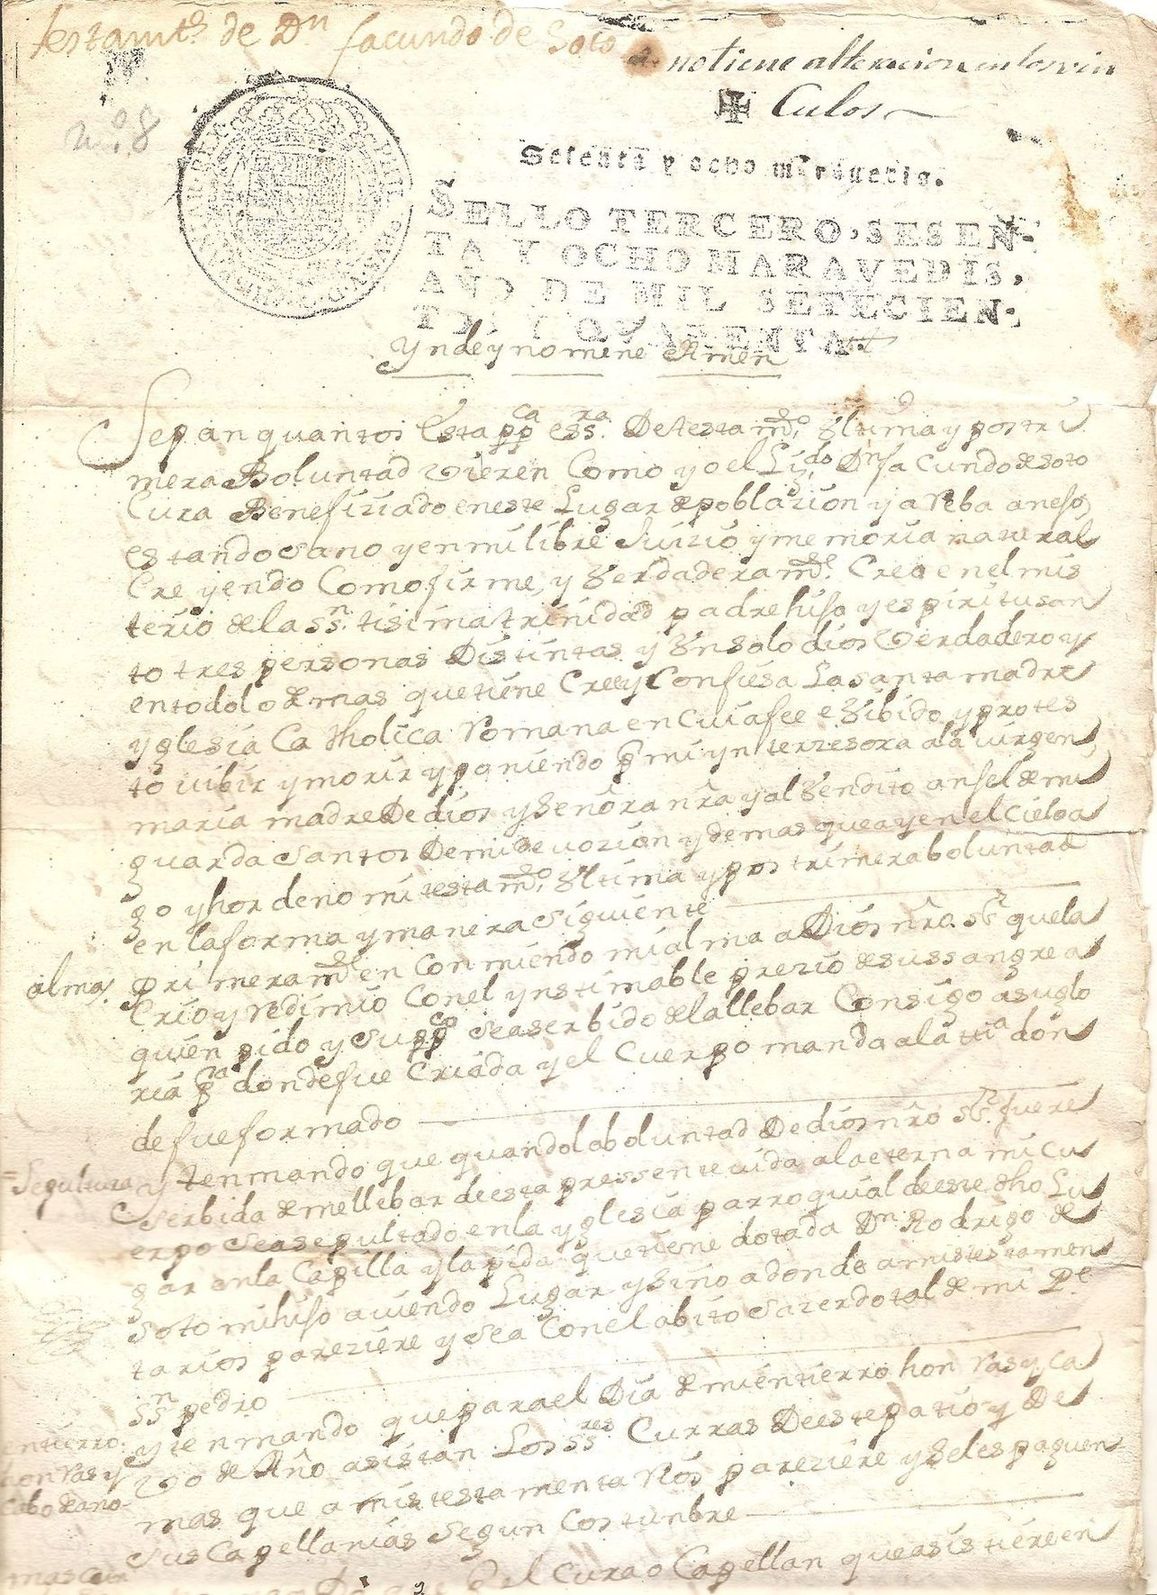 testamto. de Dn facundo de Soto
no tiene alteracion en los vin
culos
no. 8
Setenta y ocho maravedis.
SELLO TERCERO, SESEN-
TA Y OCHO MARAVEDIS,
AÑO DE MIL SETECIEN-
TOS QUARENTA.
Yn dey nomine Amen
Sepan quantos esta ppca essra. De testamdo. Ultima y postri
mera Boluntad vieren Como yo el Lizdo. Dn fa cundo de Soto
Cura Benefiziado eneste Lugar de poblazion y a Yeba anejo,
estando Sano y en mi libre Juizio y memoria natural
Creyendo Como firme, y Verdaderamde. Creo en el mis
terio de la SSn. tisima trinidad padre hijo y espiritu san
to tres personas Distintas y Un solo dios Verdadero y
en todo lo demas que tiene Cree y Confiesa La santa madre
yglesia Catholica Romana en Cuia fee e Vibido y protes
to vibir y morir y poniendo p mi ynterzesora a la virgen
maria madre De dios y Señora nra y al Vendito anjel de mi
guarda Santos De mi devozion y demas que ay en el Cielo a
go y hordeno mi testamdo. Ultima y postrimera boluntad
en la forma y manera Siguiente
alma. Primeramde en Comiendo mi alma a Dios nro. Sr que la
Crio y redimio Con el ynstimable prezio de su ssangre a
quien pido y Suppco Sea serbido de la llebar Consigo a su glo
ria pa donde fue Criada y el Cuerpo manda a la tra don
de fue formado
Sepultura yten mando que quando la boluntad De dios nro Sr fuere
Serbida de me llebar de esta pressente vida a la eterna mi cu
erpo Sea sepultado en la yglesia parroquial de este dho Lu
gar en la Capilla y lapida que tiene dotada Dn Rodrigo de
Soto mi hijo aviendo Lugar y Sino a donde a mis testamen
tarios pareziere y Sea Con el abito Sazerdotal de mi Pe
SSn pedro
entierro honras y Cabo de año yten mando que para el Dia de mi entierro honras y ca
vo de Año asistan Los SSres Curras De este patio y De
mas que a mis testamentarios pareziere y Se les paguen
Sus Capellanias Segun Costunbre
el Cura o Capellan que asistiere en